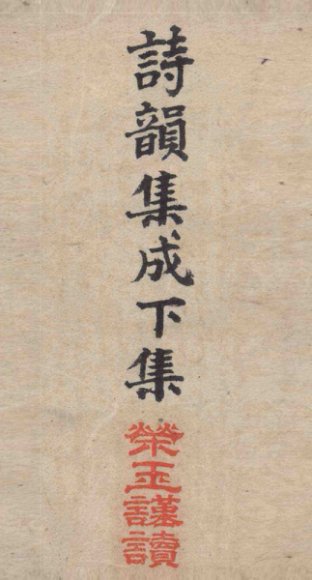 詩韻集成下集
榮玉謹讀